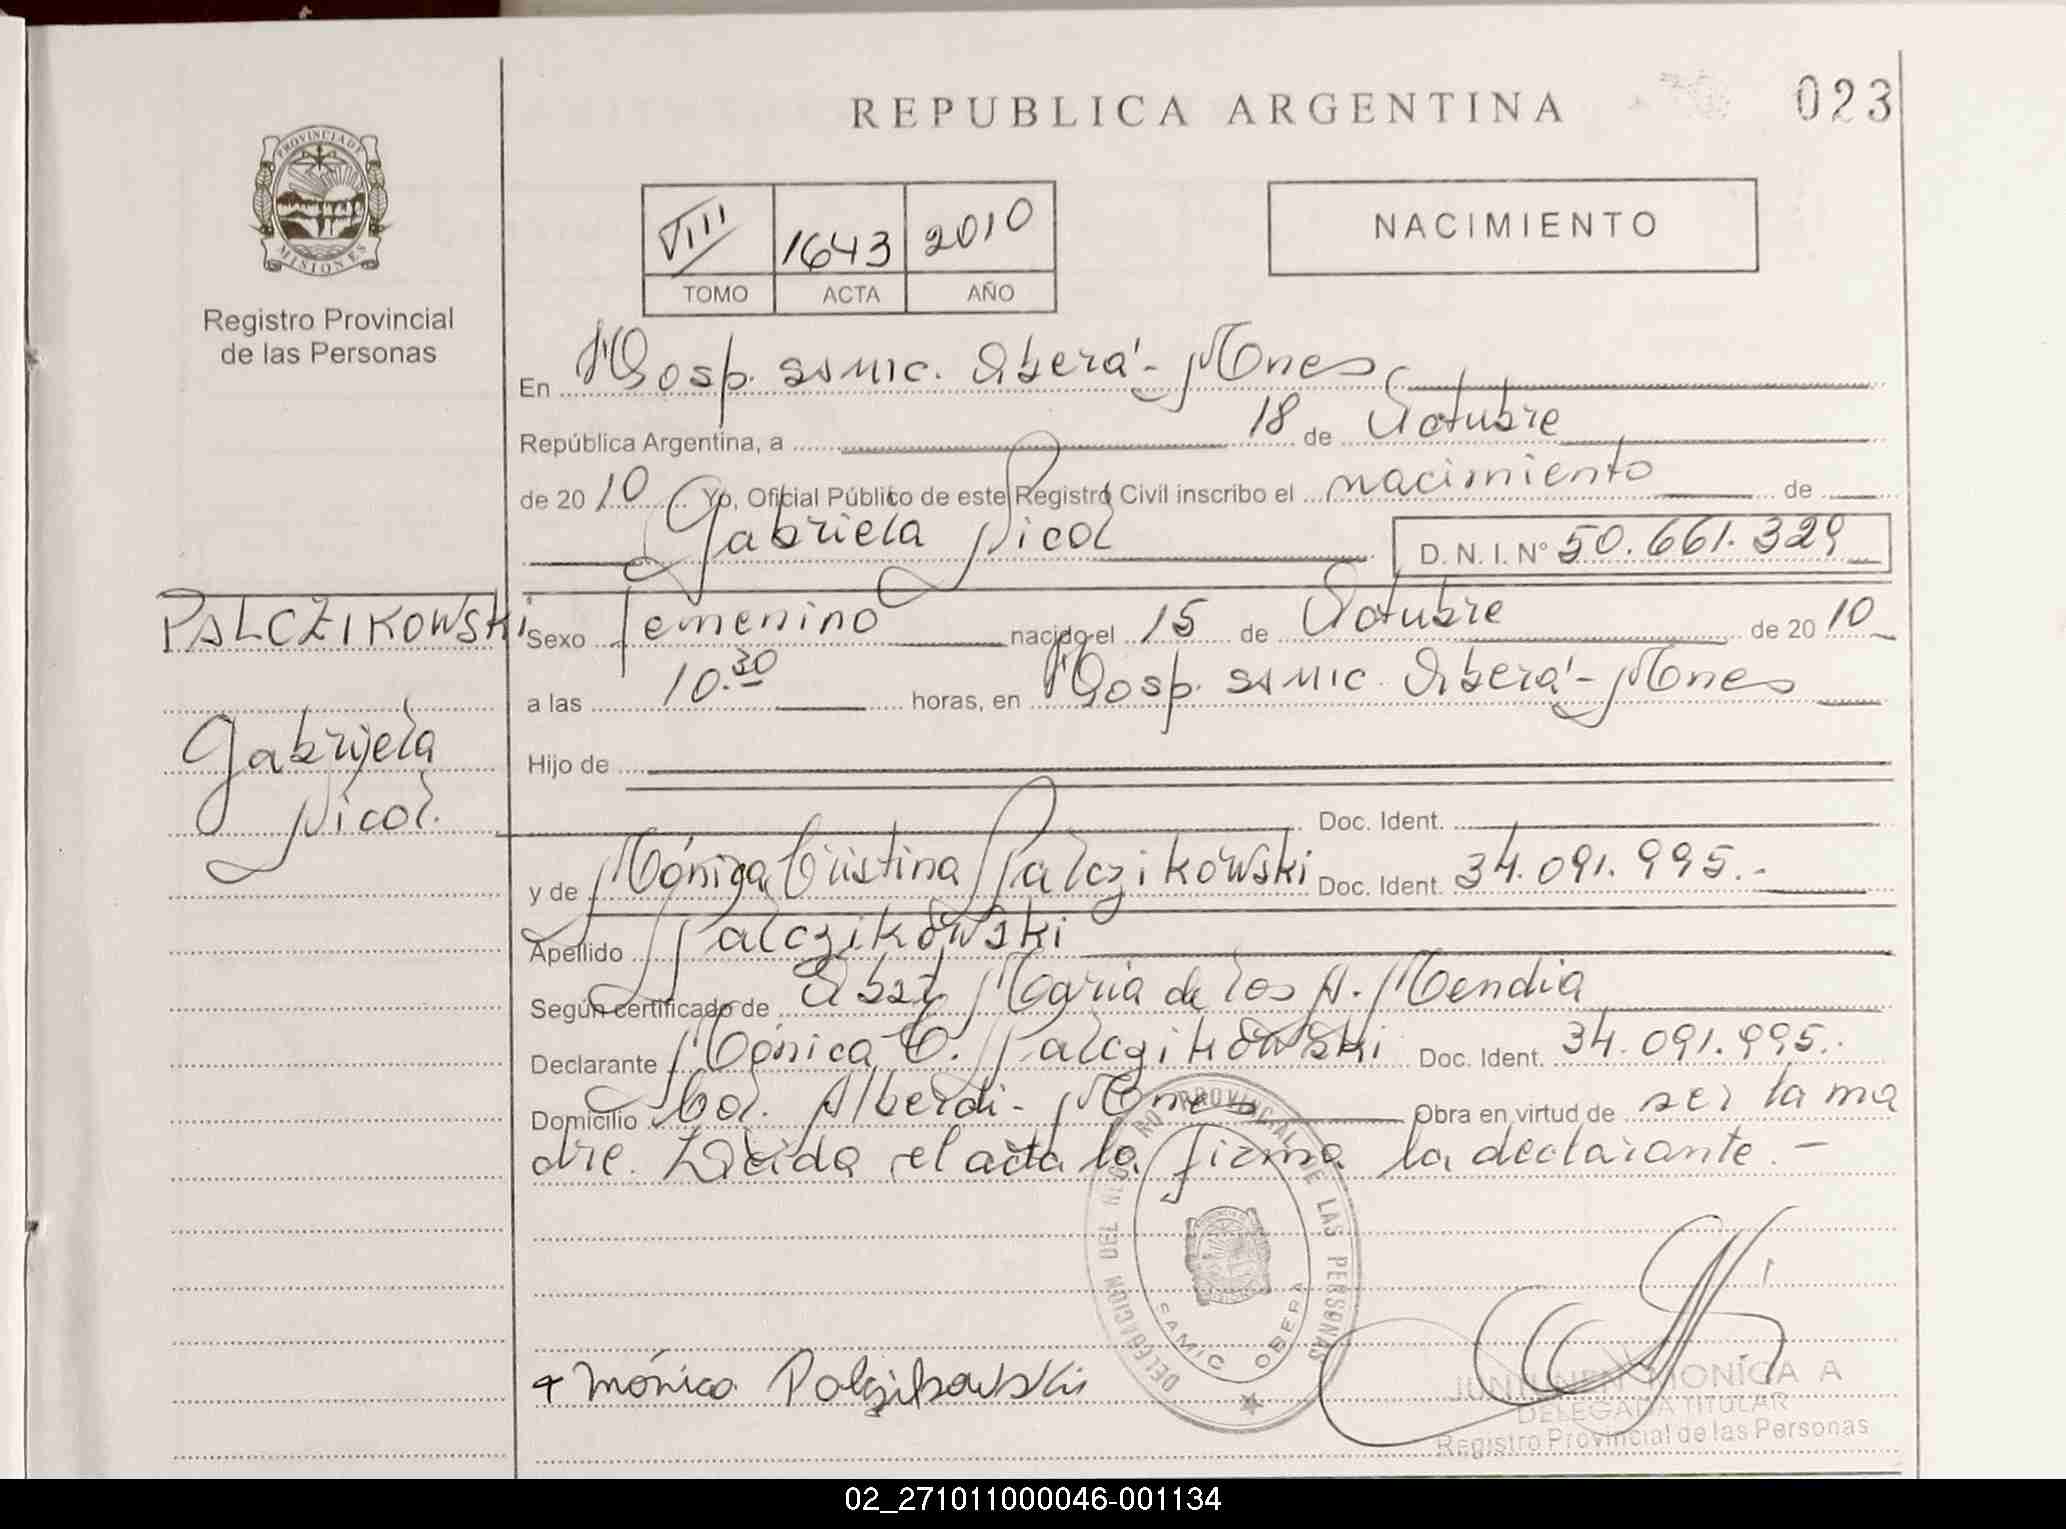 REPUBLICA ARGENTINA
023
PROVINCIA DE
MISIONES
Registro Provincial
de las Personas
VIII 1643 2010
TOMO ACTA AÑO
NACIMIENTO
En Hosp. SAMIC. Oberá - Mnes
República Argentina, a 18 de Octubre
de 2010 Yo, Oficial Público de este Registro Civil inscribo el nacimiento de
Gabriela Nicol D. N. I. N° 50.661.329
PALCZIKOWSKI
Gabriela
Nicol.
Sexo Femenino nacido el 15 de Octubre de 2010
a las 10.30 horas, en Hosp. SAMIC. Oberá - Mnes
Hijo de
Doc. Ident.
y de Mónica Cristina Palczikowski Doc. Ident. 34.091.995.-
Apellido Palczikowski
Según certificado de Obst. María de los A. Mendia
Declarante Mónica C. Palczikowski Doc. Ident. 34.091.995.-
Domicilio Col. Alberdi - Mnes Obra en virtud de ser la ma
dre. Leida el acta la firma la declarante. -
DELEGACION DEL REGISTRO PROVINCIAL DE LAS PERSONAS
SAMIC OBERA
Mónica Palczikowski
JUNTUNEN MONICA A
DELEGADA TITULAR
Registro Provincial de las Personas
02_271011000046-001134